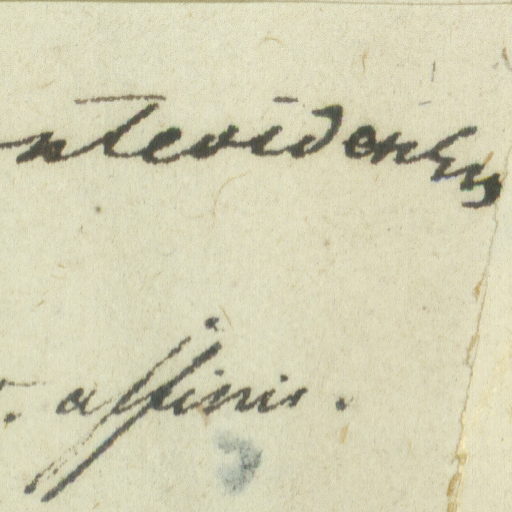 ntevidensis
. affinis.